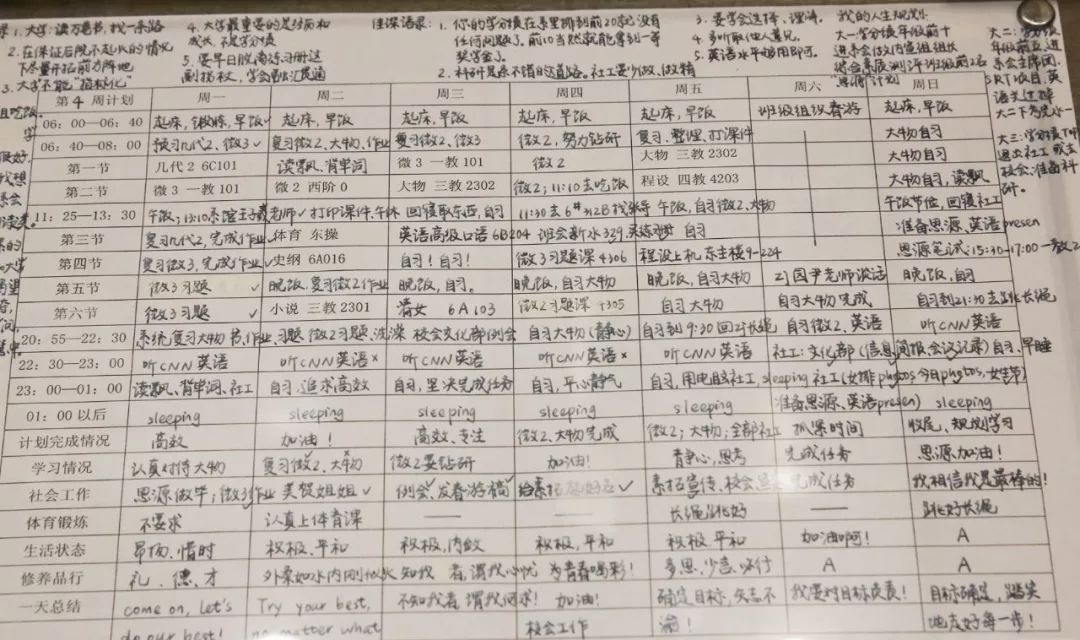 1. 大学:读万卷书,找一条路
2. 在保证后院不起火的情况
下尽量开拓前方阵地
3. 大学不能"指标化"
4. 大学最重要的是经历和
成长 不是学分绩
5. 要早日脱离练习册这
副拐杖,学会融汇贯通
佳课语录:
1. 你的学分绩在系里排到前20就没有
任何问题了。前10当然就能拿到一等
奖学金了。
2. 科研是条不错的道路。社工要少做、做精
3. 要学会选择、理清。
4. 多听取他人意见。
5. 英语水平够用即可。
我的人生规划
大一:学分绩年级前十
进系会做内宣组组长
综合素质测评班级前2名
"思源"计划
第 4 周计划 周一 周二 周三 周四 周五 周六 周日
06:00—06:40 起床,锻炼,早饭✓ 起床,早饭 起床,早饭 起床,早饭 起床,早饭 班级组织春游 起床,早饭
06:40—08:00 预习几代2,微3 ✓ 复习微2、大物,作业 复习微2、微3 微2,努力钻研 复习、整理、打课件 大物自习
第一节 几代 2 6C101 读飘、背单词 微 3 一教 101 微2 大物 三教 2302 大物自习
第二节 微 3 一教 101 微 2 西阶 0 大物 三教 2302 微2;11:10去吃饭 程设 四教 4203 大物自习,读飘
11:25—13:30 午饭;13:10系馆王子 老师✓ 打印课件,午休 回寝取东西,自习 11:30去6#312B找 午饭,自习微2、大物 午饭节位,回寝社工
第三节 复习几代2,完成作业 体育 东操 英语高级口语 6B204 班会新水329, 自习 准备思源、英语presen
第四节 复习微3,完成作业✓ 史纲 6A016 自习!自习! 微 3 习题课 4306 程设上机 东主楼9-224 思源笔试:15:30—17:00 一教
第五节 微3习题 ✓ 晚饭,复习微2作业 晚饭,自习。 晚饭,自习大物 晚饭,自习大物 21园尹老师谈话 晚饭,自习
第六节 微3习题 ✓ 小说 三教 2301 清女 6A103 微2习题课 4305 自习大物 自习大物完成 自习到21:30去跳长绳
20:55—22:30 系统复习大物书,作业 习题,微2习题,洗澡 校会文化部例会 自习大物(静心) 自习到9:30回21#长绳 自习微2、英语 听CNN英语
22:30—23:00 听CNN英语 听CNN英语× 听CNN英语 听CNN英语× 听CNN英语 社工:文化部(信息简报,会议记录) 自习,早睡
23:00—01:00 读飘、背单词、社工 自习,追求高效 自习,坚决完成任务 自习,平心静气 自习,用电脑社工,sleeping 社工(女排photos 今日photos,女生节)
01:00 以后 sleeping sleeping sleeping sleeping sleeping 准备思源、英语presen) sleeping
计划完成情况 高效 加油! 高效、专注 微2、大物完成 微2;大物;全部社工 抓紧时间 收尾,规划学习
学习情况 认真对待大物 复习微2、大物 微2要钻研 加油! 静心,思考 完成任务 思源、加油!
社会工作 思源做毕;微3作业 美贺姐姐✓ 例会、发春游稿 给素拓 ✓ 素拓宣传、校会 完成任务 我相信我是最棒的!
体育锻炼 不要求 认真上体育课 — — 长绳跳好 — 跳好长绳
生活状态 昂扬、惜时 积极、平和 积极,内敛 积极,平和 积极 平和 加油啊! A
修养品行 礼、德、才 外柔如水内刚似 知我者,谓我心忧 为青春喝彩! 多思,少言, A A
一天总结 come on, let's Try your best, 不知我者,谓我何求! 加油! 确定目标,矢志不 我要对目标负责! 目标确定,踏实
do our best! no matter what 校会工作 渝! 地走好每一步!